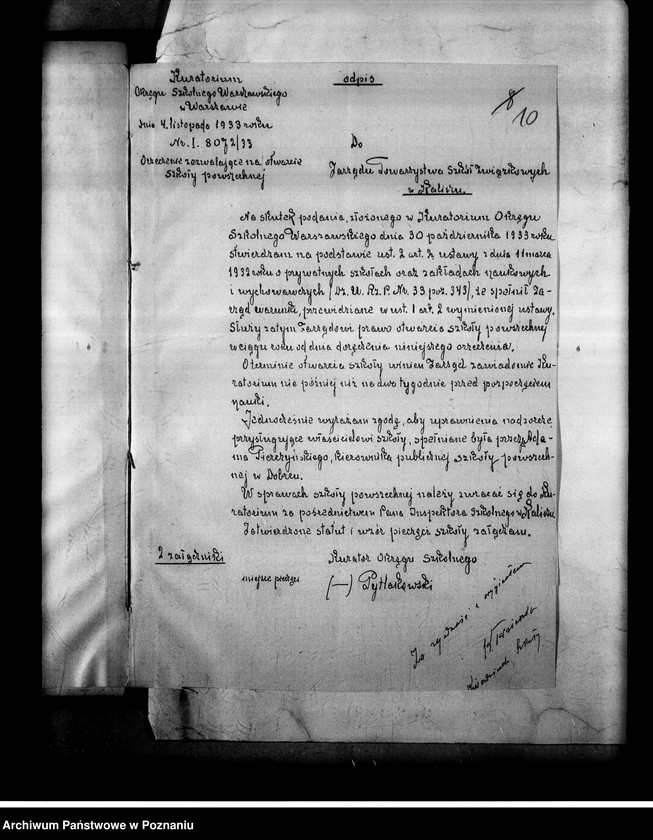 Kuratorium
Okręgu Szkolnego Warszawskiego
w Warszawie
dnia 4. listopada 1933 roku
Nr. I. 8072/33
Orzeczenie zezwalające na otwarcie
szkoły powszechnej
odpis
8
10
Do
Zarządu Towarzystwa Szkół Związkowych
w Kaliszu.
Na skutek podania, złożonego w Kuratorium Okręgu
Szkolnego Warszawskiego dnia 30 października 1933 roku
stwierdzam na podstawie ust. 2 art. 4 ustawy z dnia 11 marca
1932 roku o prywatnych szkołach oraz zakładach naukowych
i wychowawczych (Dz. U. Rz. P. Nr. 33 poz. 343), że spełnił Za-
rząd warunki, przewidziane w ust. 1 art. 2 wymienionej ustawy.
Służy zatym Zarządowi prawo otwarcia szkoły powszechnej
w ciągu roku od dnia doręczenia niniejszego orzeczenia.
O terminie otwarcia szkoły winien Zarząd zawiadomić Ku-
ratorium nie później niż na dwa tygodnie przed rozpoczęciem
nauki.
Jednocześnie wyrażam zgodę, aby uprawnienia nadzorcze
przysługujące właścicielowi szkoły, spełniane były przez Ada-
ma Pierzyńskiego, kierownika publicznej szkoły powszech-
nej w Dobrcu.
W sprawach szkoły powszechnej należy zwracać się do Ku-
ratorium za pośrednictwem Pana Inspektora Szkolnego w Kaliszu
Zatwierdzone statut i wzór pieczęci szkoły załączam.
2 załączniki
Kurator Okręgu Szkolnego
miejsce pieczęci
(—) Pytlakowski
Za zgodność z oryginałem
Archiwum Państwowe w Poznaniu